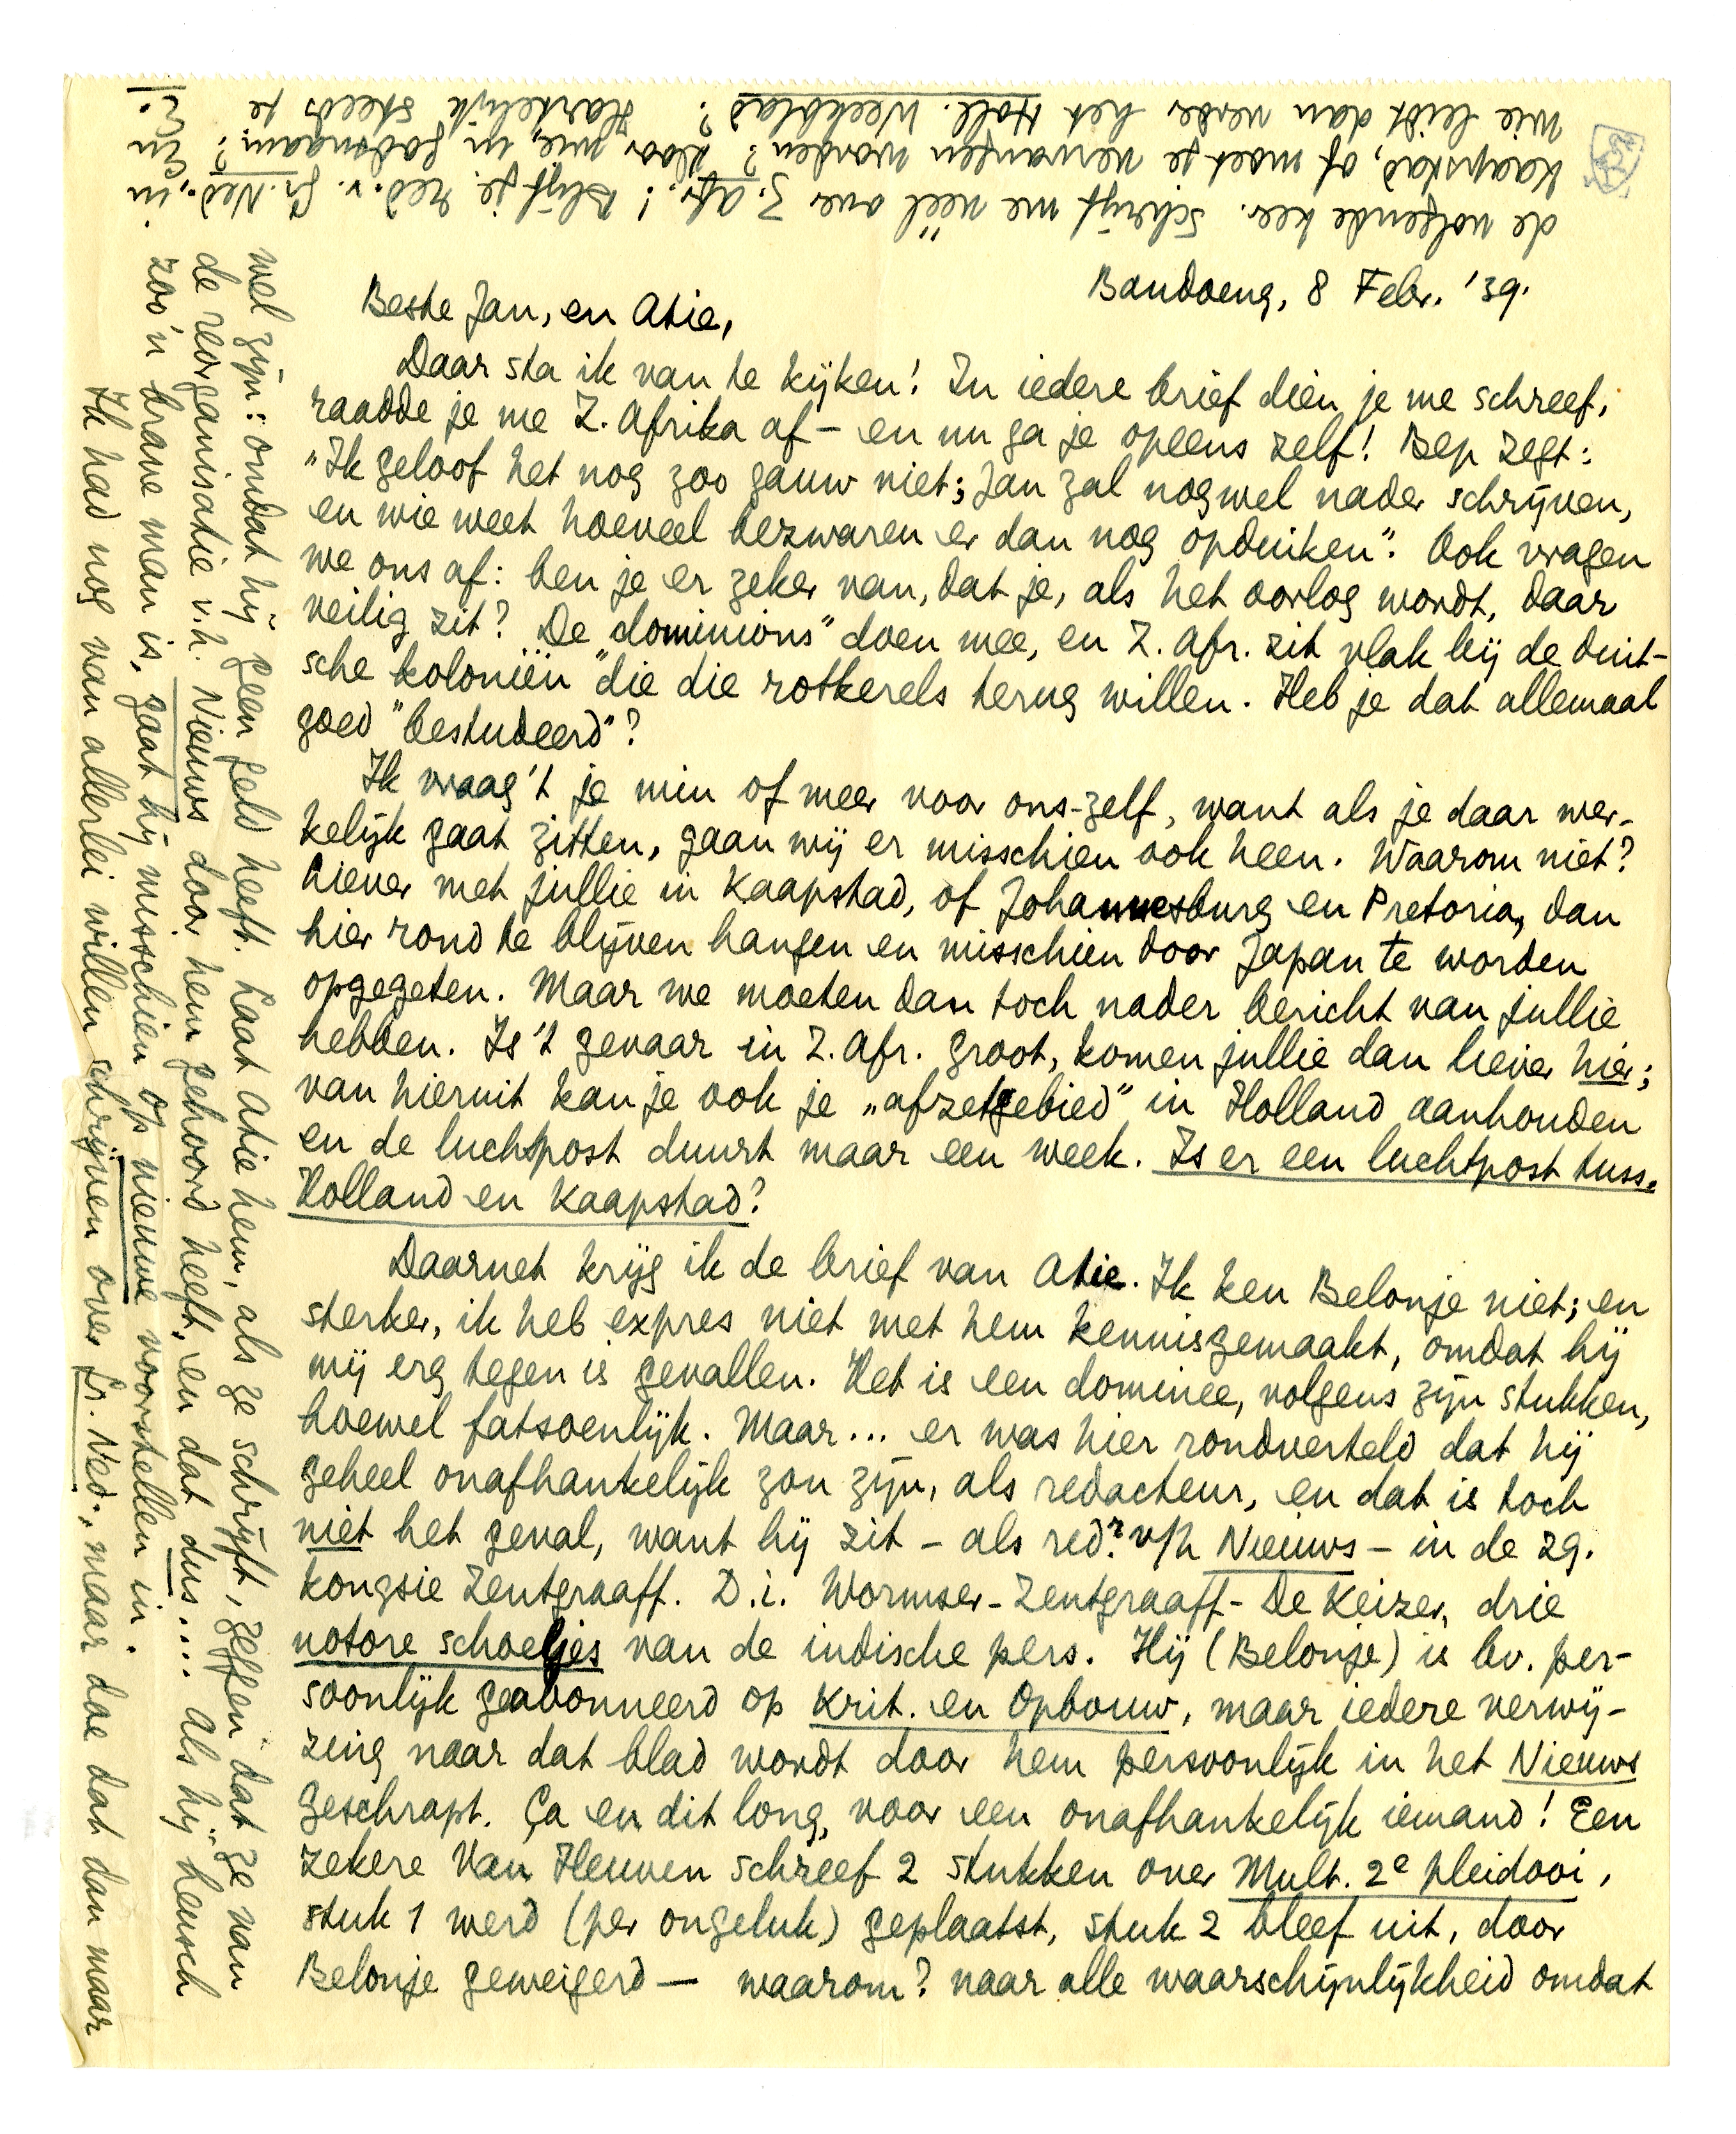 Bandoeng, 8 Febr. '39.
Beste Jan, en Atie,
Daar sta ik van te kijken! In iedere brief dien je me schreef,
raadde je me Z. Afrika af – en nu ga je opeens zelf! Bep zegt:
"Ik geloof het nog zoo gauw niet; Jan zal nog wel nader schrijven,
en wie weet hoeveel bezwaren er dan nog opduiken". Ook vragen
we ons af: ben je er zeker van, dat je, als het oorlog wordt, daar
veilig zit? De "dominions" doen mee, en Z. Afr. zit vlak bij de duit-
sche koloniën die die rotkerels terug willen. Heb je dat allemaal
goed "bestudeerd"?
Ik vraag 't je min of meer voor ons-zelf, want als je daar wer-
kelijk gaat zitten, gaan wij er misschien ook heen. Waarom niet?
Liever met jullie in Kaapstad, of Johannesburg en Pretoria, dan
hier rond te blijven hangen en misschien door Japan te worden
opgegeten. Maar we moeten dan toch nader bericht van jullie
hebben. Is 't gevaar in Z. Afr. groot, komen jullie dan liever hier;
van hieruit kan je ook je „afzetgebied" in Holland aanhouden
en de luchtpost duurt maar een week. Is er een luchtpost tuss.
Holland en Kaapstad?
Daarnet krijg ik de brief van Atie. Ik ken Belonje niet; en
sterker, ik heb expres niet met hem kennisgemaakt, omdat hij
mij erg tegen is gevallen. Het is een dominee, volgens zijn stukken,
hoewel fatsoenlijk. Maar... er was hier rondverteld dat hij
geheel onafhankelijk zou zijn, als redacteur, en dat is toch
niet het geval, want hij zit – als redr. v/h Nieuws – in de zg.
kongsie Zentgraaff. D.i. Wormser-Zentgraaff-De Keizer, drie
notore schoeljes van de indische pers. Hij (Belonje) is bv. per-
soonlijk geabonneerd op Krit. en Opbouw, maar iedere verwij-
zing naar dat blad wordt door hem persoonlijk in het Nieuws
geschrapt. Ça en dit long, voor een onafhankelijk iemand! Een
zekere Van Heuven schreef 2 stukken over Mult. 2e pleidooi,
stuk 1 werd (per ongeluk) geplaatst, stuk 2 bleef uit, door
Belonje geweigerd — waarom? naar alle waarschijnlijkheid omdat
wel zijn: omdat hij geen geld heeft. Laat Atie hem, als ze schrijft, zeggen dat ze van
de reorganisatie v.h. Nieuws door hem gehoord heeft, en dat dus.... Als hij heusch
zoo'n brave man is, gaat hij misschien op nieuwe voorstellen in.
Ik had nog van allerlei willen schrijven over Gr. Ned., maar doe dat dan maar
de volgende keer. Schrijf me véél over Z. Afr.! Blijf je red. v. Gr. Ned. in
Kaapstad, of moet je vervangen worden? Door wie, in godsnaam? En
wie leidt dan verder het Holl. Weekblad? Hartelijk steeds je
E.